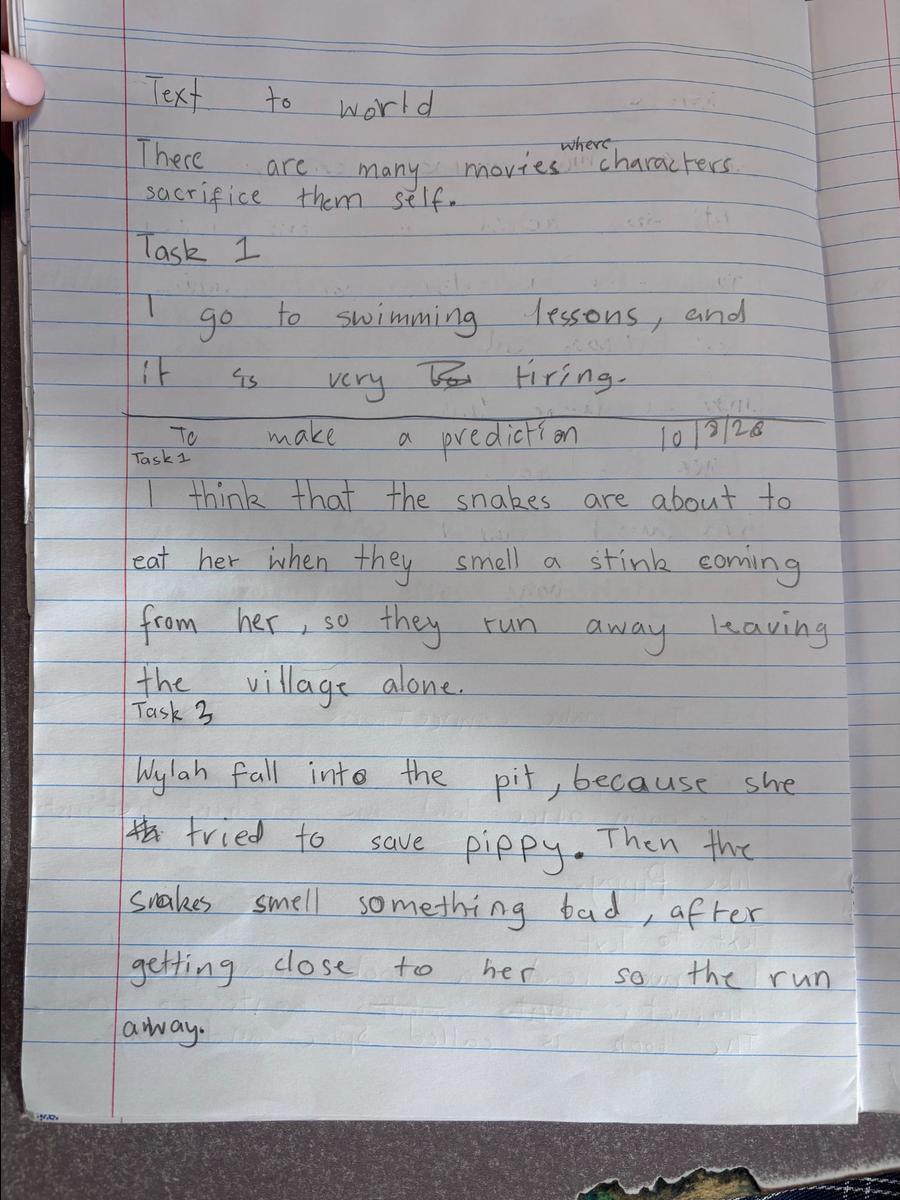 Text to world
There are many movies where characters
sacrifice them self.
Task 1
I go to swimming lessons, and
it is very tiring.
To make a prediction 10/8/26
Task 1
I think that the snakes are about to
eat her when they smell a stink coming
from her, so they run away leaving
the village alone.
Task 3
Wylah fall into the pit, because she
tried to save pippy. Then the
snakes smell something bad, after
getting close to her so the run
away.